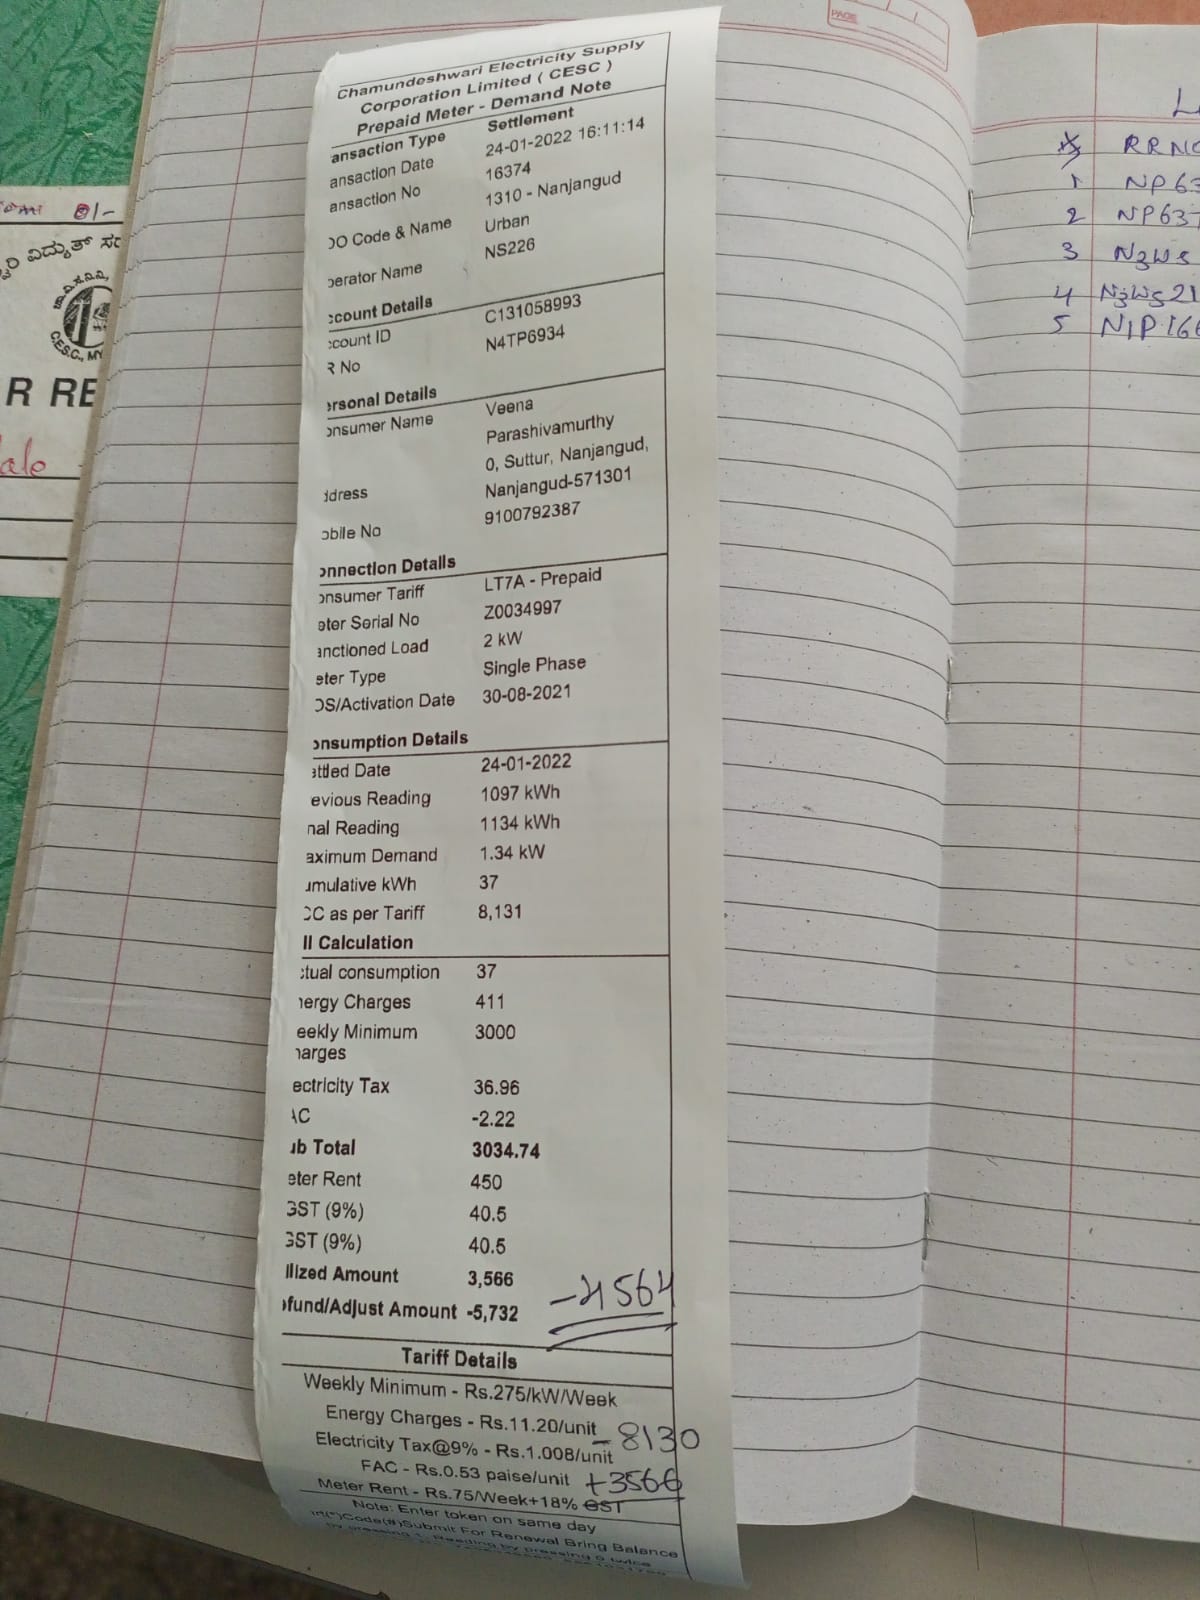 Chamundeshwari Electricity Supply
Corporation Limited ( CESC )
Prepaid Meter - Demand Note
ansaction Type Settlement
ansaction Date 24-01-2022 16:11:14
ansaction No 16374
OO Code & Name 1310 - Nanjangud
Urban
perator Name NS226
ccount Details
ccount ID C131058993
R No N4TP6934
ersonal Details
onsumer Name Veena
Parashivamurthy
ddress 0, Suttur, Nanjangud,
Nanjangud-571301
obile No 9100792387
onnection Details
onsumer Tariff LT7A - Prepaid
eter Serial No Z0034997
anctioned Load 2 kW
eter Type Single Phase
OS/Activation Date 30-08-2021
onsumption Details
ettled Date 24-01-2022
evious Reading 1097 kWh
nal Reading 1134 kWh
aximum Demand 1.34 kW
umulative kWh 37
CC as per Tariff 8,131
ll Calculation
ctual consumption 37
nergy Charges 411
eekly Minimum 3000
harges
ectricity Tax 36.96
AC -2.22
ub Total 3034.74
eter Rent 450
GST (9%) 40.5
GST (9%) 40.5
ilized Amount 3,566
efund/Adjust Amount -5,732
-4564
Tariff Details
Weekly Minimum - Rs.275/kW/Week
Energy Charges - Rs.11.20/unit
-8130
Electricity Tax@9% - Rs.1.008/unit
FAC - Rs.0.53 paise/unit
+3566
Meter Rent - Rs.75/Week+18% GST
Note: Enter token on same day
Code(#)Submit For Renewal Bring Balance
by pressing Reading by pressing 9 twice
PAGE
RRNO
1 NP63
2 NP637
3 N3WS
4 N3WS21
5 N1P166
8/-
ವಿದ್ಯುತ್ ಸರ
C.E.S.C., MY
R RE
ale